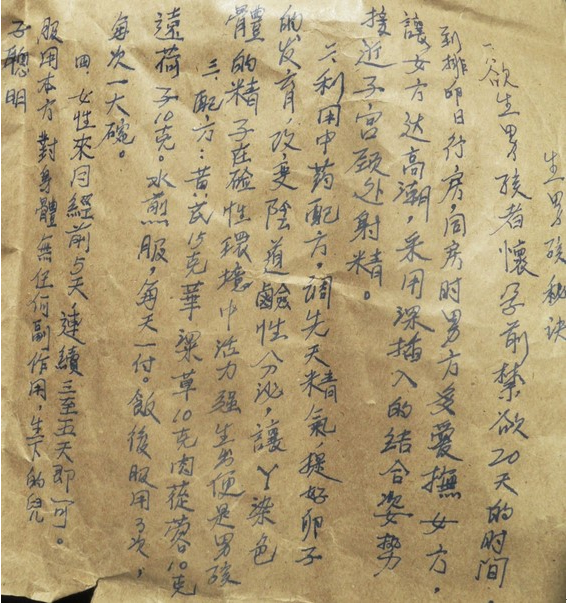 生男孩秘诀
一.欲生男孩者懷孕前禁欲20天的时間.
到排卵日行房,同房时男方多愛撫女方,
讓女方达高潮,采用深插入的结合姿势
接近子宫颈处射精。
二.利用中药配方,调先天精氣,提好卵子
的发育,改变陰道鹼性分泌,讓丫染色
體的精子在硷性環境中活力强生出便是男孩
三.配方:黄芪15克華梁草10克肉蓯蓉10克
遠荷子10克。水煎服,每天一付。飯後服用3次,
每次一大碗。
四.女性來月經前5天,連續三至五天即可。
服用本方對身體無任何副作用,生下的兒
子聰明